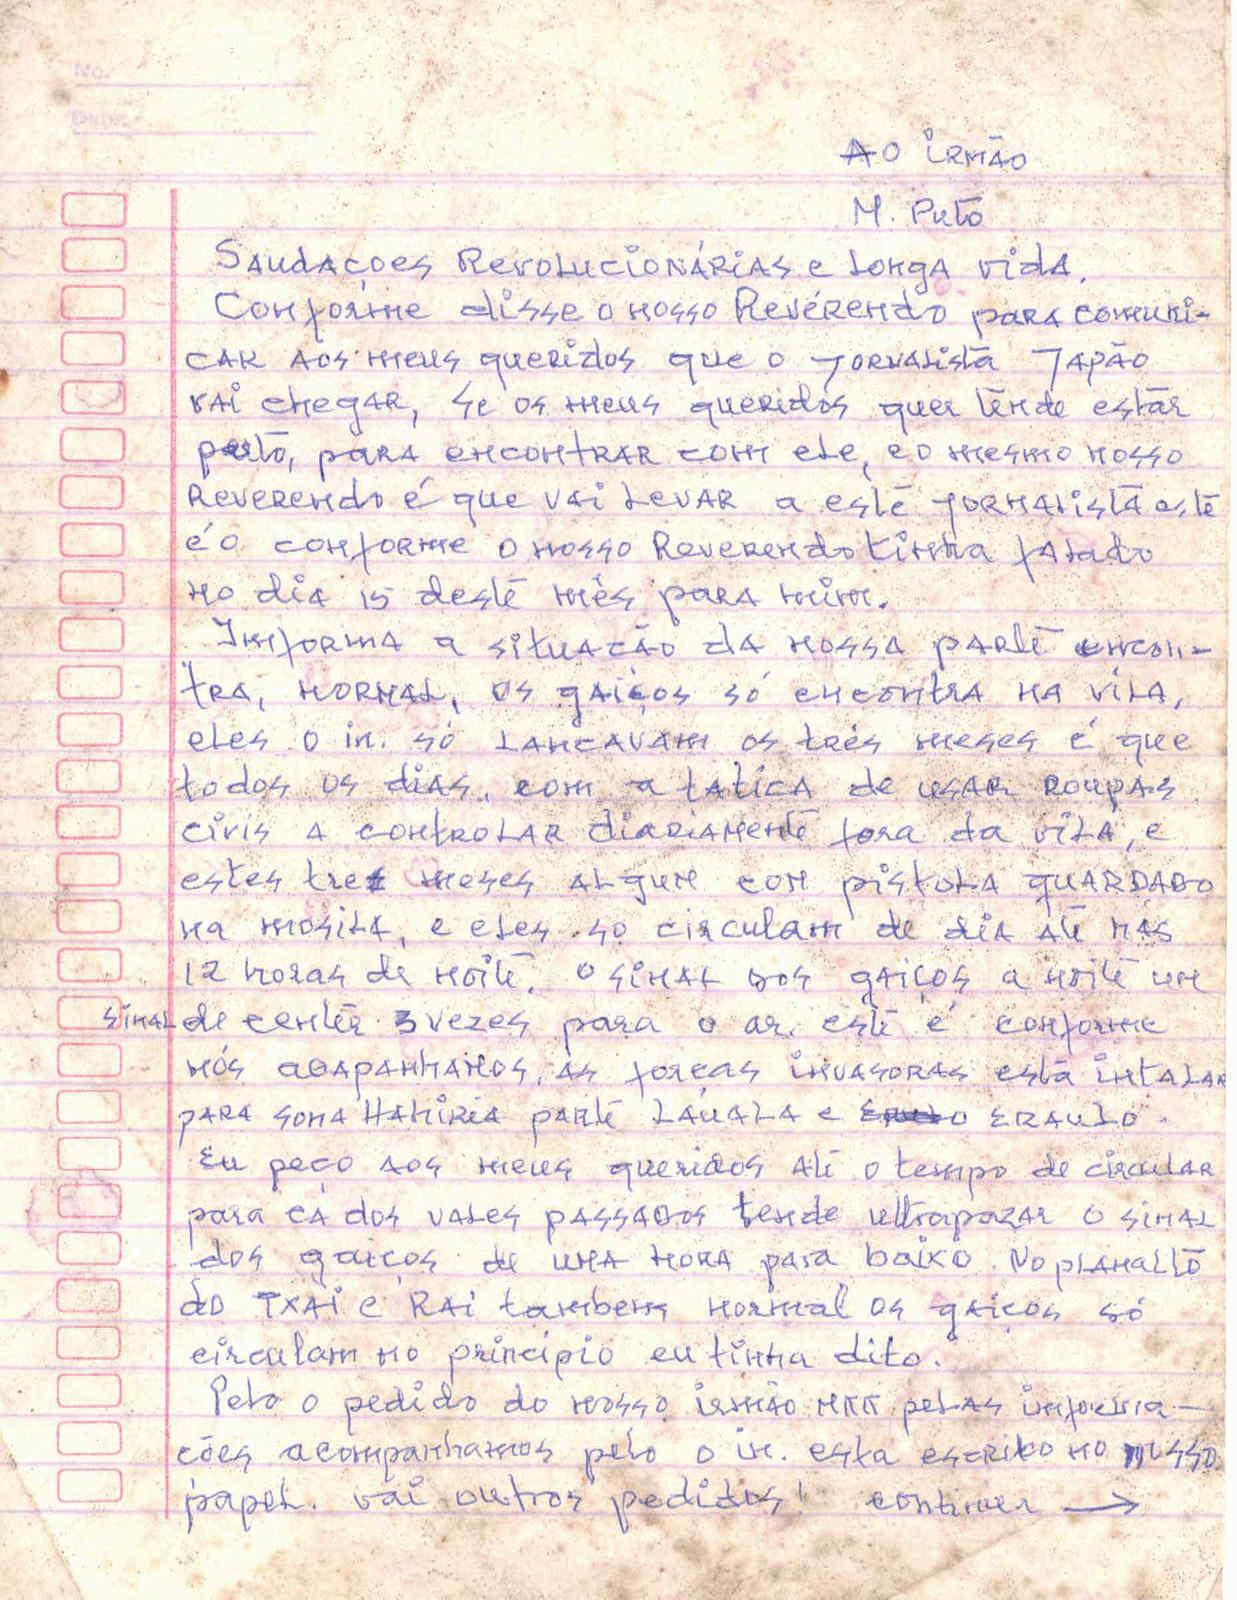 NO.
DATE
AO IRMÃO
M. Putō
Saudações Revolucionárias e longa vida.
Conforme disse o nosso Revérendo para comuni-
car aos meus queridos que o jornalistā Japão
vai chegar, se os meus queridos quer tēnde estār
pertō, para encontrar com ele, e o mesmo nosso
Reverendo é que vai levar a estē jornalistā estē
é o conforme o nosso Reverendo tinha falado
no dia 15 destē mês para mim.
Imforma a situação da nossa partē encon-
tra, normal, os gaiços só encontra na vila,
eles o in. só lancavam os três meses é que
todos os dias, com a tatica de usar roupas
civis a controlar diariamentē fora da vila, e
estes tres meses algum com pistola guardado
na mosila, e eles so circulam de dia atē nas
12 horas de noitē. O sinal dos gaiços a noitē um
sinal de centēr 3 vezes para o ar, estē é conforme
nós acapanhamos, as forças invasoras está intalar
para soma Hahiria partē Lauala e Eraulo.
Eu peço aos meus queridos atē o tempo de circular
para cá dos vales passados tende ultrapazar o sinal
dos gaiços de uma hora para baixo. No planaltō
do Txai e Rai tambem normal os gaiços só
circulam no princípio eu tinha dito.
Pelo o pedido do nosso irmão MKK pelas informa-
ções acompanhamos pelo o in. esta escrito no nosso
papel. vai outros pedidos! continuer →